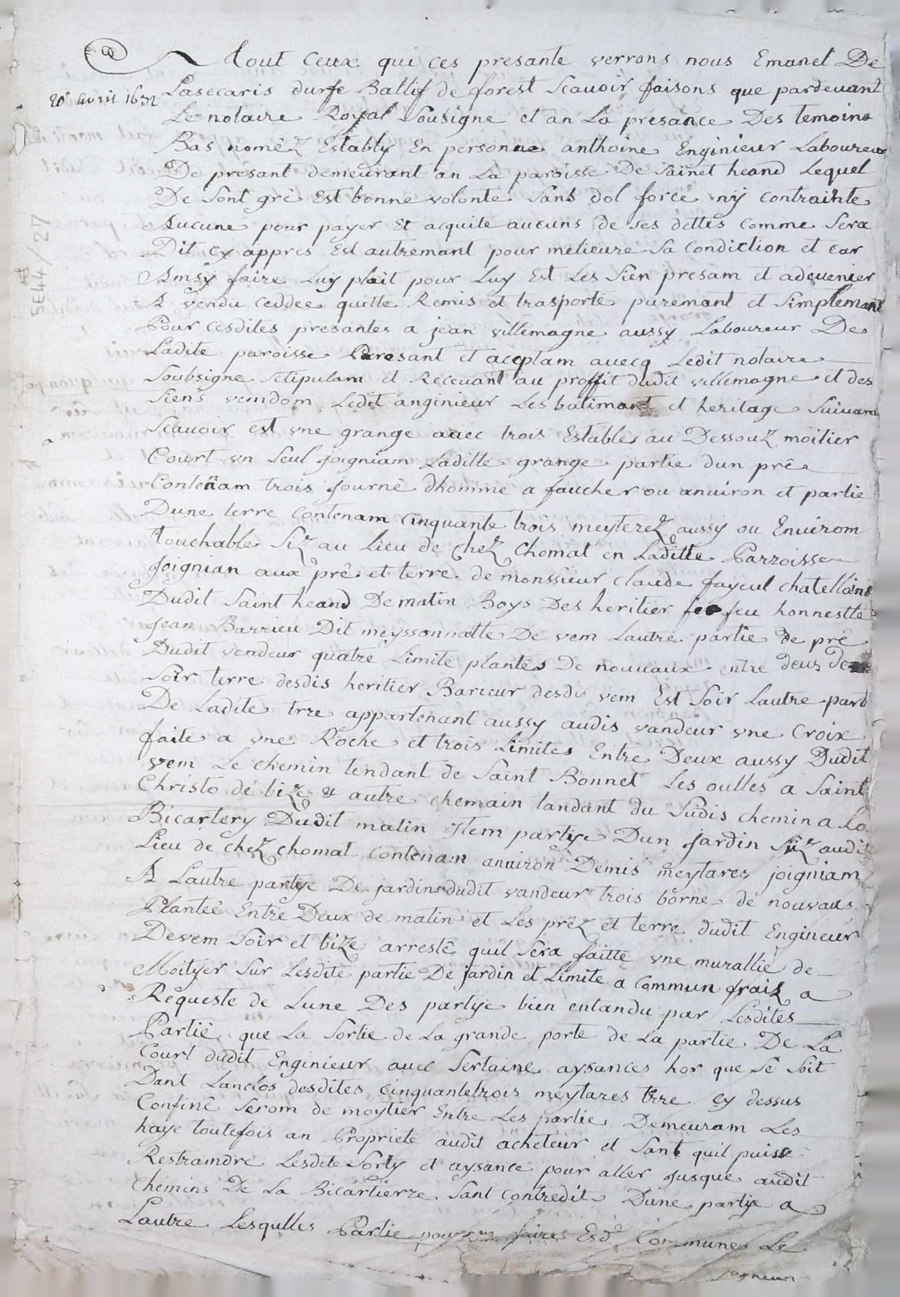 A tout ceux qui ces presante verrons nous Emanel De
20e avril 1632
Lasecaris durfe Ballif de forest Scavoir faisons que pardevant
Le notaire Royal Sousigne et an La presance Des temoins
Bas noméz Estably En personne anthoine Enginieur Laboureur
De presant demeurant an La paroisse De Sainct heand Lequel
De Sont gré Est bonne volonte Sans dol force ny contrainte
Aucune pour payer Et acquite aucuns de ses dettes comme Sera
Dit cy appres Est autremant pour melieure Sa Condiction et car
Amsy faire Luy plait pour Luy Est Les Sien presam et advenier
A vendu ceddee quitte Remis et trasporte puremant et Simplemant
Pour cesdites presantes a jean villemagne aussy Laboureur De
Ladite paroisse Presant et aceptam avecq Ledit notaire
Soubsigne Sctipulam et Recevant au proffit dudit villemagne et des
Siens veindom Ledit anginieur Les batimant et heritage Suivant
Scavoir est une grange avec trois Estables au Dessouz moitier
Court un Seul joigniam Laditte grange partie dun pré
Contenam trois journé dhomme a faucher ou anviron et partie
Dune terre contenam cinquante trois meyterez aussy ou Envirom
touchable Siz au Lieu de chez chomat en Laditte Parroisse
joignian aux pré et terre de monsieur claude fayeul chatellain
Dudit Saint heand De matin Boys Des heritier feu honnestte
Jean Barrieu Dit meyssonnatte De vem Lautre partie De pré
Dudit vendeur quatre Limite plantés De nouvaux entre deux de
Soir terre desdis heritier Barieur desdis vem Est Soir Lautre part
De Ladite trre appartenant aussy audis vandeur vne Croix
faite a vne Roche et trois Limites Entre Deux aussy Dudit
vem Le chemin tendant de Saint Bonnet Les oulles a Saint
Christo de bize & autre chemain tandant du Sudis chemin a La
Bicartery Dudit matin Item partye Dun jardin Siz audit
Lieu de chez chomat contenan anviron Demis meytares joigniam
A Lautre partye De jardin dudit vandeur trois borne de nouvaux
Plantée Entre Deux de matin et Les préz et terre dudit Engineur
De vem Soir et bize arresté quil Sera faitte vne murallie de
Moityer Sur Lesdite partie De jardin et Limite a Commun fraix a
Requeste de Lune Des partye bien entandu par Lesdites
Partié que La Sortie de La grande porte de La partie De La
Court dudit Enginieur avec Sertaine aysances hor que Se Soit
Dant Lanclos desdites cinquantetrois meytares trre cy dessus
Confiné Serom de moytier Entre Les partie Demeuram Les
haye toutefois an Propriete audit acheteur et Sant quil puise
Restramdre Lesdite Sorty et aysance pour aller jusque audit
Chemins De La Bicartierre Sant contredit Dune partye a
Lautre Lesqulles Partie faire Commune Le
5E44/27